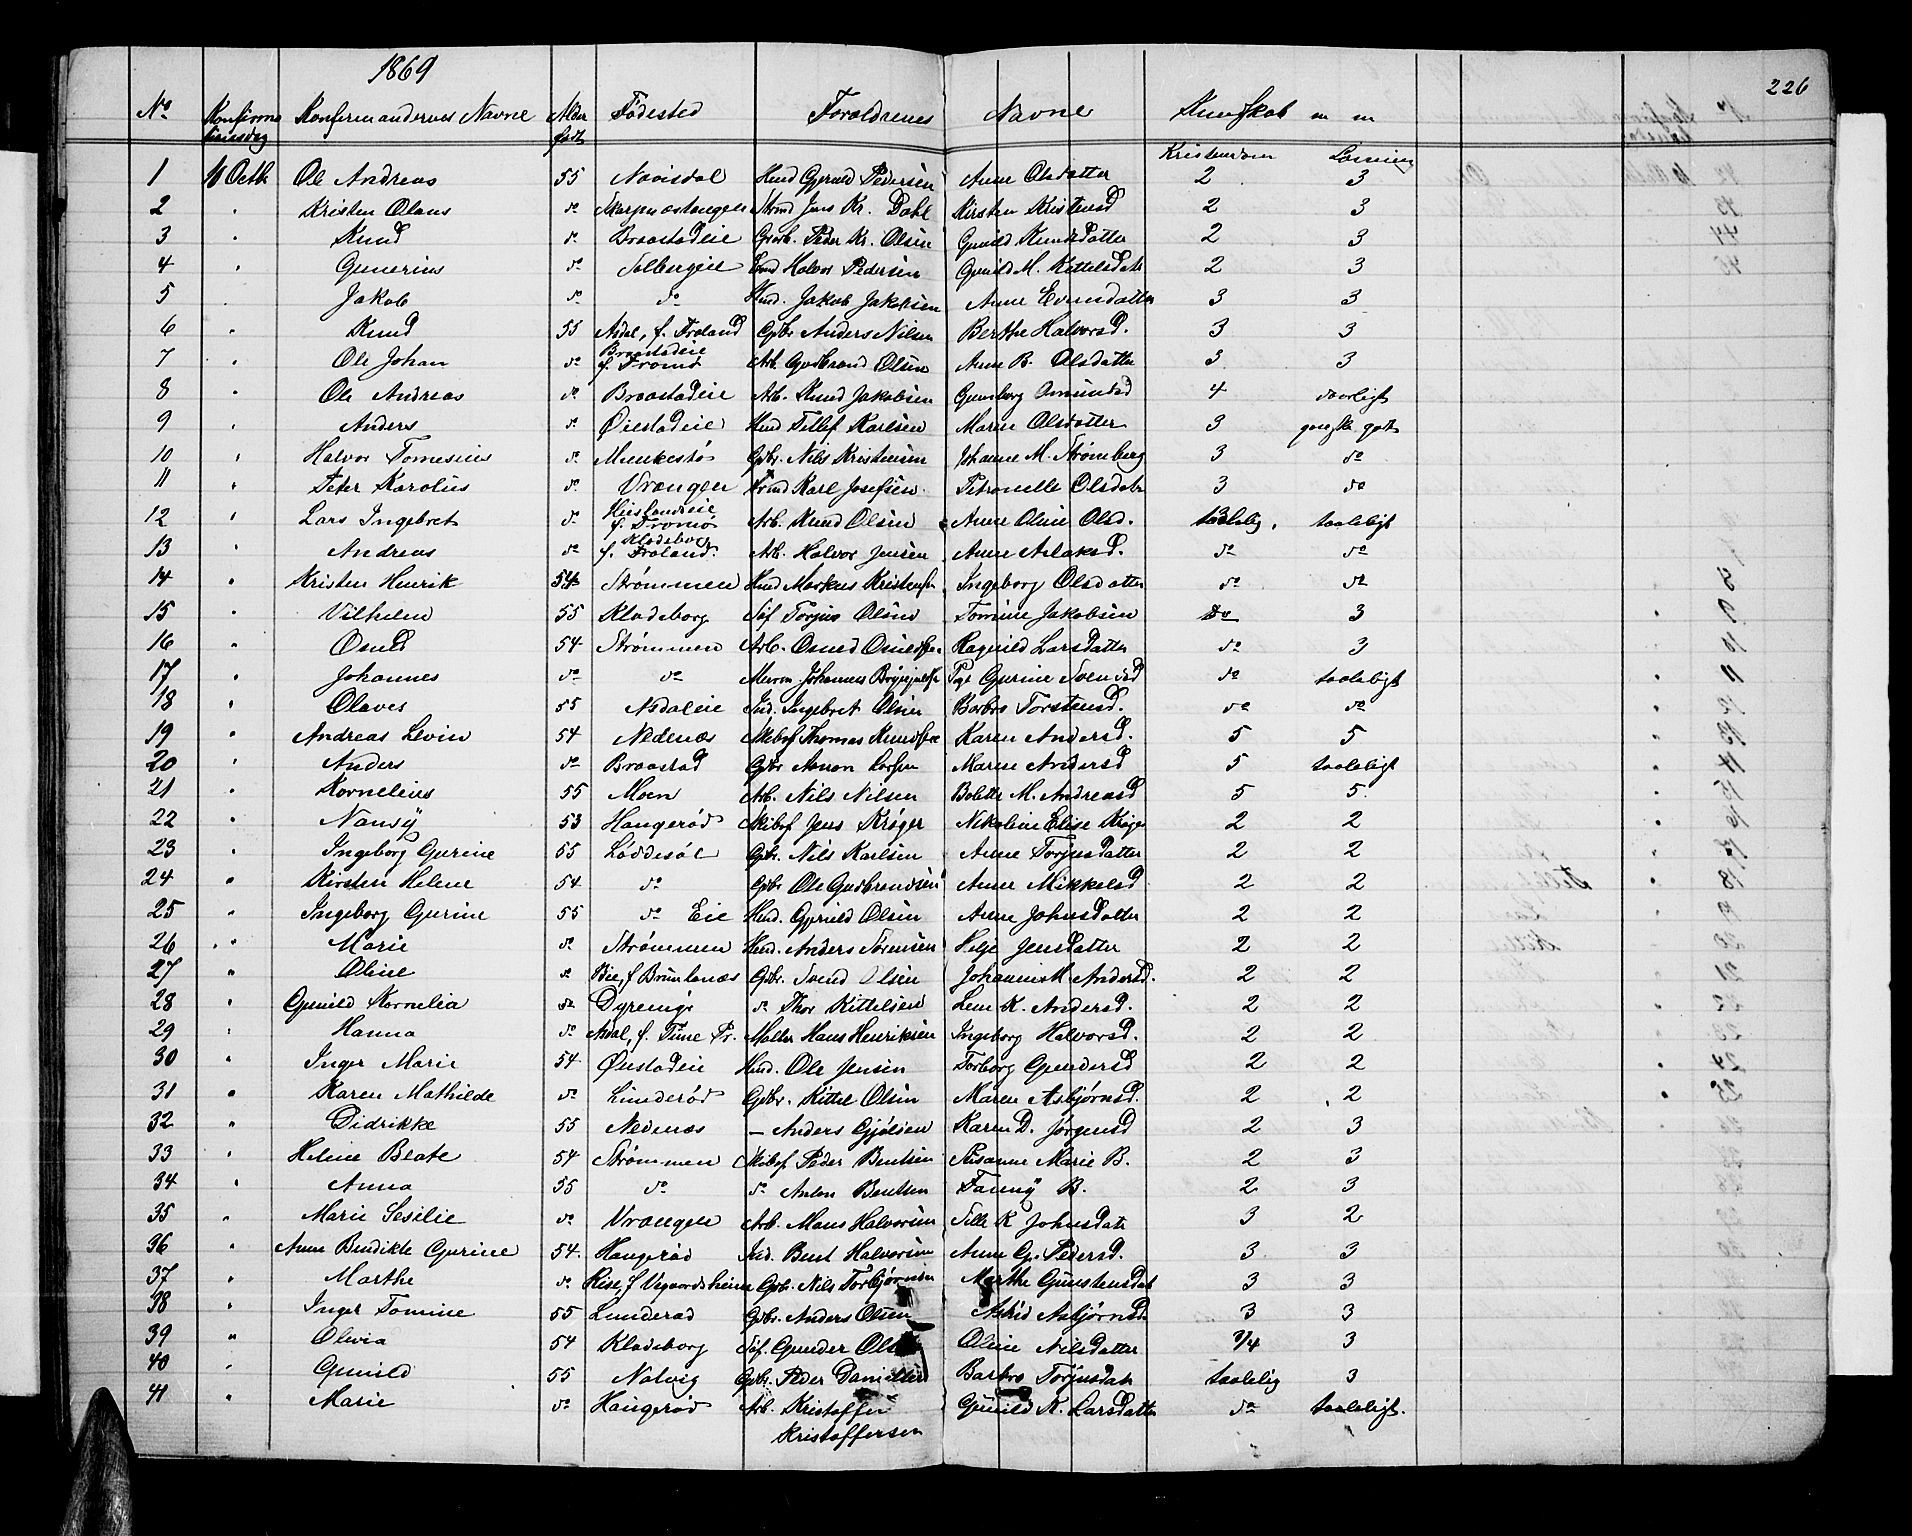 1869
226
No Konfirmationsdag Konfirmandernes Navne Alder født Fødested Forældrenes Navne Kundskab m m
Kristendom Læsning
1 10 Octb. Ole Andreas 55 Navisdal Husmd Gjeruld Pedersen Anne Olsdatter 2 3
2 " Kristen Olaus do Skarpnæstangen Strmd Jens Kr. Dahl Kirsten Kristensd 2 3
3 " Knud do Braastadeie Grbr. Peder Kr. Olsen Gunild Knudsdatter 2 3
4 " Gunerius do Solbergeie Halvor Pedersen Gunild M. Kittelsdatr 2 3
5 " Jakob do do Husmd. Jakob Jakobsen Anne Evensdatter 3 3
6 " Knud 55 Asdal, f. Froland Gdbr Anders Nilsen Berthe Halvorsd. 3 3
7 " Ole Johan do Braastadeie f. Tromø Arb. Gudbrand Olsen Anne B. Olsdatter 3 3
8 " Ole Andreas do Braastadeie Arb. Knud Jakobsen Gunborg Omundsd 4 daarligt
9 " Anders do Øiestadeie Husmd Detlef Karlsen Maren Olsdatter 3 ganske godt
10 " Halvor Tomesius do Munkestø Gdbr. Nils Kristensen Johanne M. Strømberg 3 do
11 " Peter Karolius do Vrængen Strmd Karl Josefsen Petronelle Olsdatr 3 do
12 " Lars Ingebret do f. Tromø Arb. Knud Olsen Anne Oline Olsd. taalelig taaleligt
13 " Andreas do Kladeborg f. Froland Arb. Halvor Jensen Anne Aslaksd. do do
14 " Kristen Henrik 54 Strømmen Husmd Markus Kristensen Ingeborg Olsdatter do do
15 " Vilhelm 55 Kladeborg Søf Torjus Olsen Tomine Jakobsen do 3
16 " Osuld 54 Strømmen Arb. Osuld Osuldsen Ragnild Larsdatter do 3
17 " Johannes do do Johannes Pige Gurine Svendsd do taaleligt
18 " Olaves 55 Nedaleie Ind. Ingebret Olsen Barbro Torstensd. do do
19 " Andreas Levin 54 Nedenæs Skibsf Thomas Knudsen Karen Andersd. 5 5
20 " Anders do Braastad Gdbr Aanon Larsen Maren Andersd 5 taaleligt
21 " Kornelius 55 Moen Arb. Nils Nilsen Bolette M. Andreasd 5 5
22 " Nansy 53 Haugerød Skibsf Jens Krøger Nikoline Elise Krøger 2 2
23 " Ingeborg Gurine 55 Løddesøl Gdbr. Nils Karlsen Anne Torjusdatter 2 2
24 " Kirsten Helene 54 do Gdbr Ole Gudbrandsen Anne Mikkelsd 2 2
25 " Ingeborg Gurine 55 do Eie Husmd. Gjeruld Olsen Anne Johnsdatter 2 2
26 " Marie do Strømmen Husmd. Anders Sørensen Helje Jensdatter 2 2
27 " Oline do Bie, f Brunlanæs Gdbr. Svend Olsen Johanne M. Andersd. 2 2
28 " Gunild Kornelia do Dyrening do Thor Kittelsen Lene K. Andersd. 2 2
29 " Hanna do Asdal, f. Time Pr. Møller Hans Henriksen Ingeborg Halvorsd. 2 2
30 " Inger Marie 54 Øiestadeie Husmd. Ole Jensen Torborg Gundersd 2 2
31 " Karen Mathilde do Lunderød Gdbr. Kittel Olsen Maren Asbjørnsd. 2 2
32 " Didrikke 55 Nedenæs — Anders Gjølsen Karen D. Jørgensd 2 3
33 " Heline Beate 54 Strømmen Skibsf Peder Bentsen Susanne Marie B. 2 3
34 " Anna 55 do do Anton Bentsen Fanny B. 2 3
35 " Marie Sesilie do Vrængen Arb. Hans Halvorsen Sille K Johnsdatr 3 2
36 " Anne Bendikte Gurine 54. Haugerød Ind. Bent Halvorsen Anne G. Pedersd. 3 3
37 " Marthe do Rise, f Vegaardsheien Gdbr. Nils Torbjørnsen Marthe Gunstensdatr 3 3
38 " Inger Tomine 55 Lunderød Gdbr. Anders Olsen Astrid Asbjørnsd 3 3
39 " Olivia 54 Kladeborg Søf. Gunder Olsen Oline Nilsdatter 3/4 3
40 " Gunild 55 Natvig Gdbr. Peder Danielsen Barbro Torjusdatr taalelig 3
41 " Marie do Haugerød Arb. Kristoffer Kristoffersen Gunild K. Larsdatter do taaleligt.